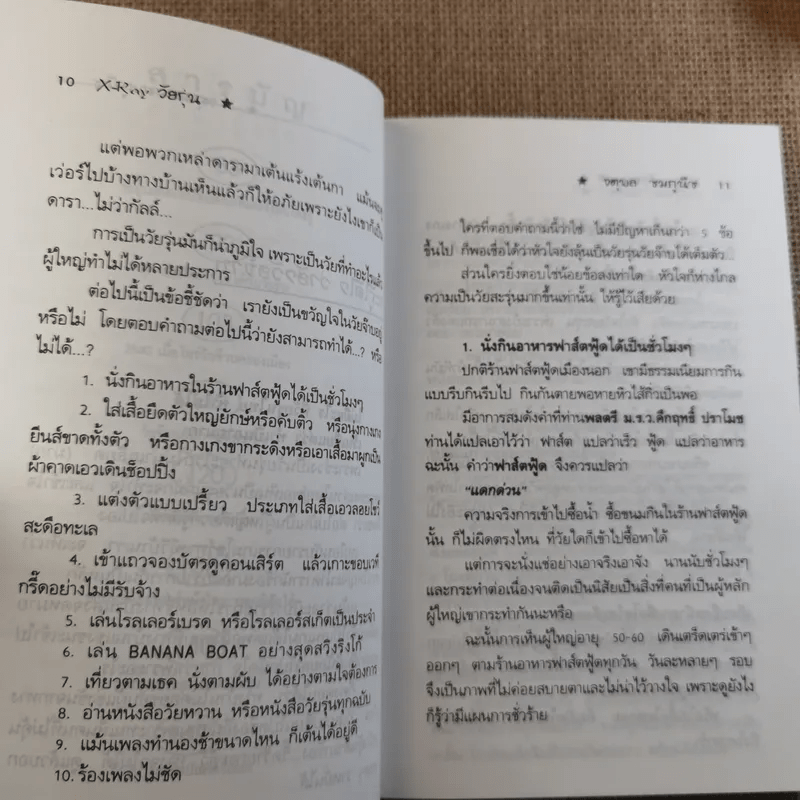 10 X-Ray วัยรุ่น ★
แต่พอพวกเหล่าดารามาเต้นแร้งเต้นกา แม้น
เว่อร์ไปบ้างทางบ้านเห็นแล้วก็ให้อภัยเพราะยังไงเขาก็เป็น
ดารา...ไม่ว่ากัลล์...
การเป็นวัยรุ่นมันก็น่าภูมิใจ เพราะเป็นวัยที่ทำอะไรแล้ว
ผู้ใหญ่ทำไม่ได้หลายประการ
ต่อไปนี้เป็นข้อชี้ชัดว่า เรายังเป็นขวัญใจในวัยจ๊าบอยู่
หรือไม่ โดยตอบคำถามต่อไปนี้ว่ายังสามารถทำได้...? หรือ
ไม่ได้...?
1. นั่งกินอาหารในร้านฟาส์ตฟู้ดได้เป็นชั่วโมงๆ
2. ใส่เสื้อยืดตัวใหญ่ยักษ์หรือคับติ้ว หรือนุ่งกางเกง
ยีนส์ขาดทั้งตัว หรือกางเกงขากระดิ่งหรือเอาเสื้อมาผูกเป็น
ผ้าคาดเอวเดินช็อปปิ้ง
3. แต่งตัวแบบเปรี้ยว ประเภทใส่เสื้อเอวลอยโชว์
สะดือทะเล
4. เข้าแถวจองบัตรดูคอนเสิร์ต แล้วเกาะขอบเวที
กรี๊ดอย่างไม่มีรับจ้าง
5. เล่นโรลเลอร์เบรด หรือโรลเลอร์สเก็ตเป็นประจำ
6. เล่น BANANA BOAT อย่างสุดสวิงริงโก้
7. เที่ยวตามเธค นั่งตามผับ ได้อย่างตามใจต้องการ
8. อ่านหนังสือวัยหวาน หรือหนังสือวัยรุ่นทุกฉบับ
9. แม้นเพลงทำนองช้าขนาดไหน ก็เต้นได้อยู่ดี
10. ร้องเพลงไม่ชัด
★ จตุพล ชมภูนิช 11
ใครที่ตอบคำถามนี้ว่าใช่ ไม่มีปัญหาเกินกว่า 5 ข้อ
ขึ้นไป ก็พอเชื่อได้ว่าหัวใจยังลุ้นเป็นวัยรุ่นวัยจ๊าบได้เต็มตัว...
ส่วนใครยิ่งตอบใช่น้อยข้อลงเท่าใด หัวใจก็ห่างไกล
ความเป็นวัยสะรุ่นมากขึ้นเท่านั้น ให้รู้ไว้เสียด้วย
1. นั่งกินอาหารฟาส์ตฟู้ดได้เป็นชั่วโมงๆ
ปกติร้านฟาส์ตฟู้ดเมืองนอก เขามีธรรมเนียมการกิน
แบบรีบกินรีบไป กินกันตายพอหายหิวไส้กิ่วเป็นพอ
มีอาการสมดังคำที่ท่านพลตรี ม.ร.ว.คึกฤทธิ์ ปราโมช
ท่านได้แปลเอาไว้ว่า ฟาส์ต แปลว่าเร็ว ฟู้ด แปลว่าอาหาร
ฉะนั้น คำว่าฟาส์ตฟู้ด จึงควรแปลว่า
"แดกด่วน"
ความจริงการเข้าไปซื้อน้ำ ซื้อขนมกินในร้านฟาส์ตฟู้ด
นั้น ก็ไม่ผิดตรงไหน ที่วัยใดก็เข้าไปซื้อหาได้
แต่การจะนั่งแช่อย่างเอาจริงเอาจัง นานนับชั่วโมงๆ
และกระทำต่อเนื่องจนติดเป็นนิสัยเป็นสิ่งที่คนที่เป็นผู้หลัก
ผู้ใหญ่เขากระทำกันนะหรือ
ฉะนั้นการเห็นผู้ใหญ่อายุ 50-60 เดินเตร็ดเตร่เข้าๆ
ออกๆ ตามร้านอาหารฟาส์ตฟู้ดทุกวัน วันละหลายๆ รอบ
จึงเป็นภาพที่ไม่ค่อยสบายตาและไม่น่าไว้วางใจ เพราะดูยังไง
ก็รู้ว่ามีแผนการชั่วร้าย